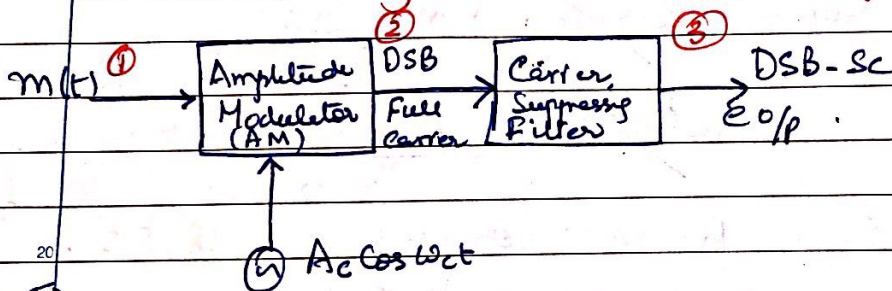 m(t) ①
Amplitude
Modulator
(AM)
②
DSB
Full
Carrier
Carrier
Suppressing
Filter
③
DSB-SC
@ o/p.
Ac Cos ωct
20